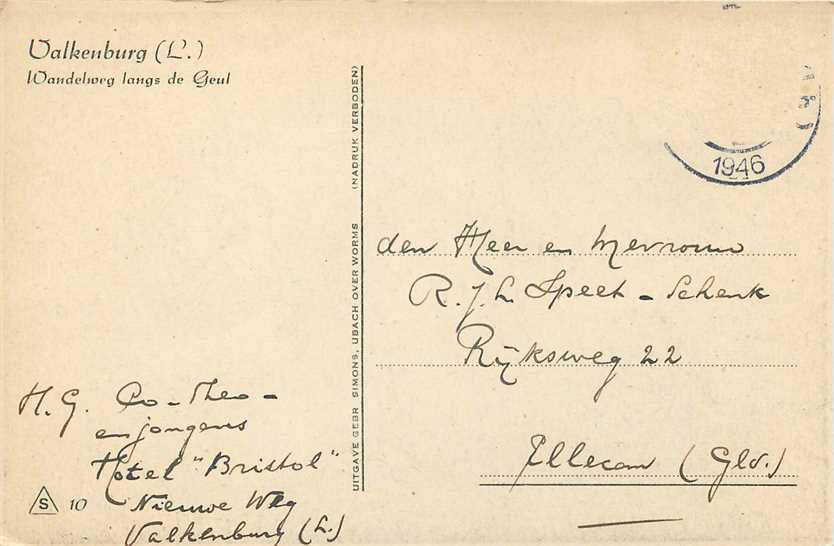 Valkenburg (L.)
Wandelweg langs de Geul
UITGAVE GEBR SIMONS, UBACH OVER WORMS (NADRUK VERBODEN)
1946
den Heer en Mevrouw
R. J. H. Speet - Schenk
Rijksweg 22
Ellecom (Gld.)
H. G. Co - Theo -
en jongens
Hotel "Bristol"
Nieuwe Weg
Valkenburg (L.)
S 10